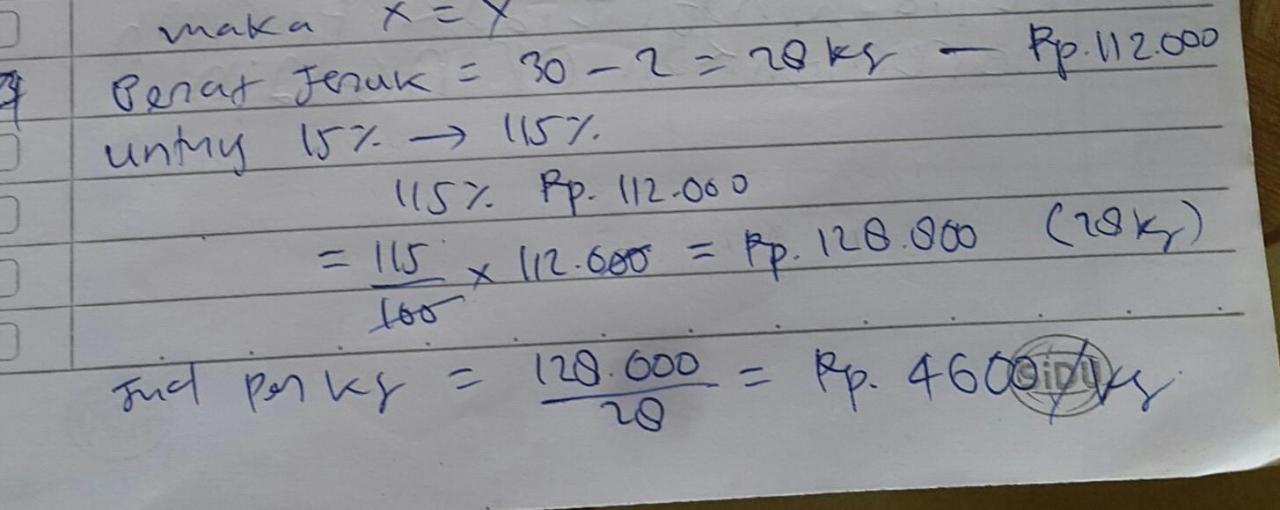 maka x = y
Berat Jeruk = 30 - 2 = 28 kg — Rp. 112.000
untug 15% → 115%
115% Rp. 112.000
= 115/100 x 112.000 = Rp. 128.800 (28 kg)
Jual per kg = 128.800/28 = Rp. 4600/kg